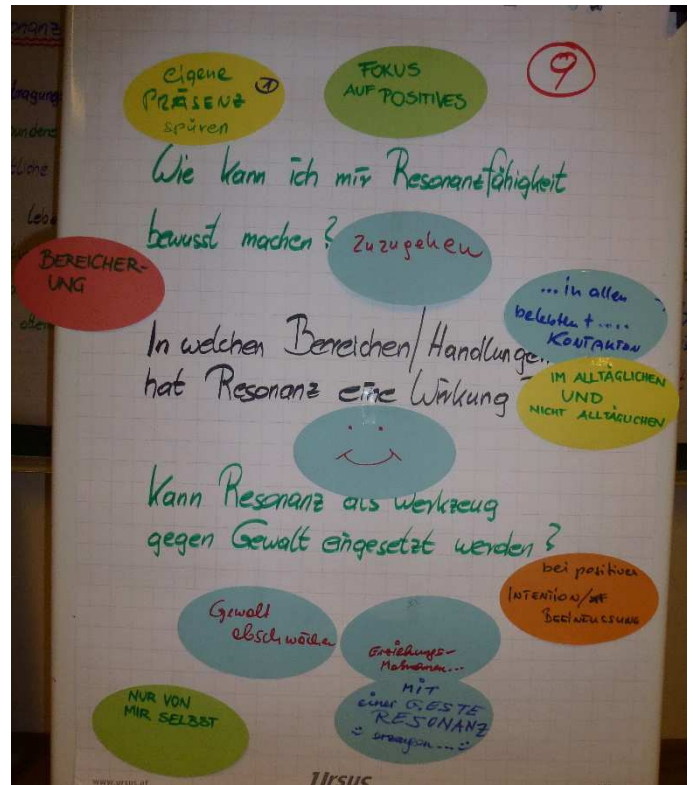 eigene
PRÄSENZ ①
spüren
FOKUS
AUF POSITIVES
9
Wie kann ich mir Resonanzfähigkeit
bewusst machen?
zuzugehen
BEREICHER-
UNG
...in allen
belebten + .....
KONTAKTEN
In welchen Bereichen/Handlungen
hat Resonanz eine Wirkung
IM ALLTÄGLICHEN
UND
NICHT ALLTÄGLICHEN
Kann Resonanz als Werkzeug
gegen Gewalt eingesetzt werden?
bei positiver
INTENTION/
BEEINFLUSSUNG
Gewalt
abschwächen
Erziehungs-
Maßnahmen...
MIT
einer GESTE
RESONANZ
erzeugen...
NUR VON
MIR SELBST
www.ursus.at
Ursus